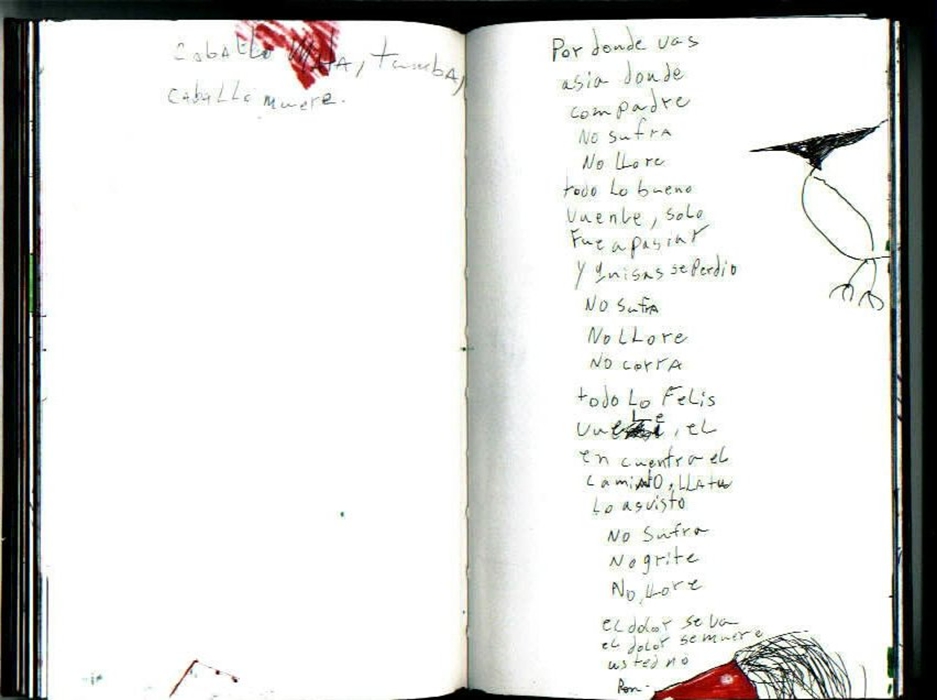 Caballo Mata, tumba,
caballo muere.
Por donde vas
asia donde
compadre
No sufra
No llore
todo lo bueno
vuenbe, solo
Fue a pasiar
y quisas se perdio
No sufra
No llore
No corra
todo lo felis
vuelve, el
encuentra el
camino, lla tu
lo as visto
No sufra
No grite
No llore
el dolor se va
el dolor se muere
usted no